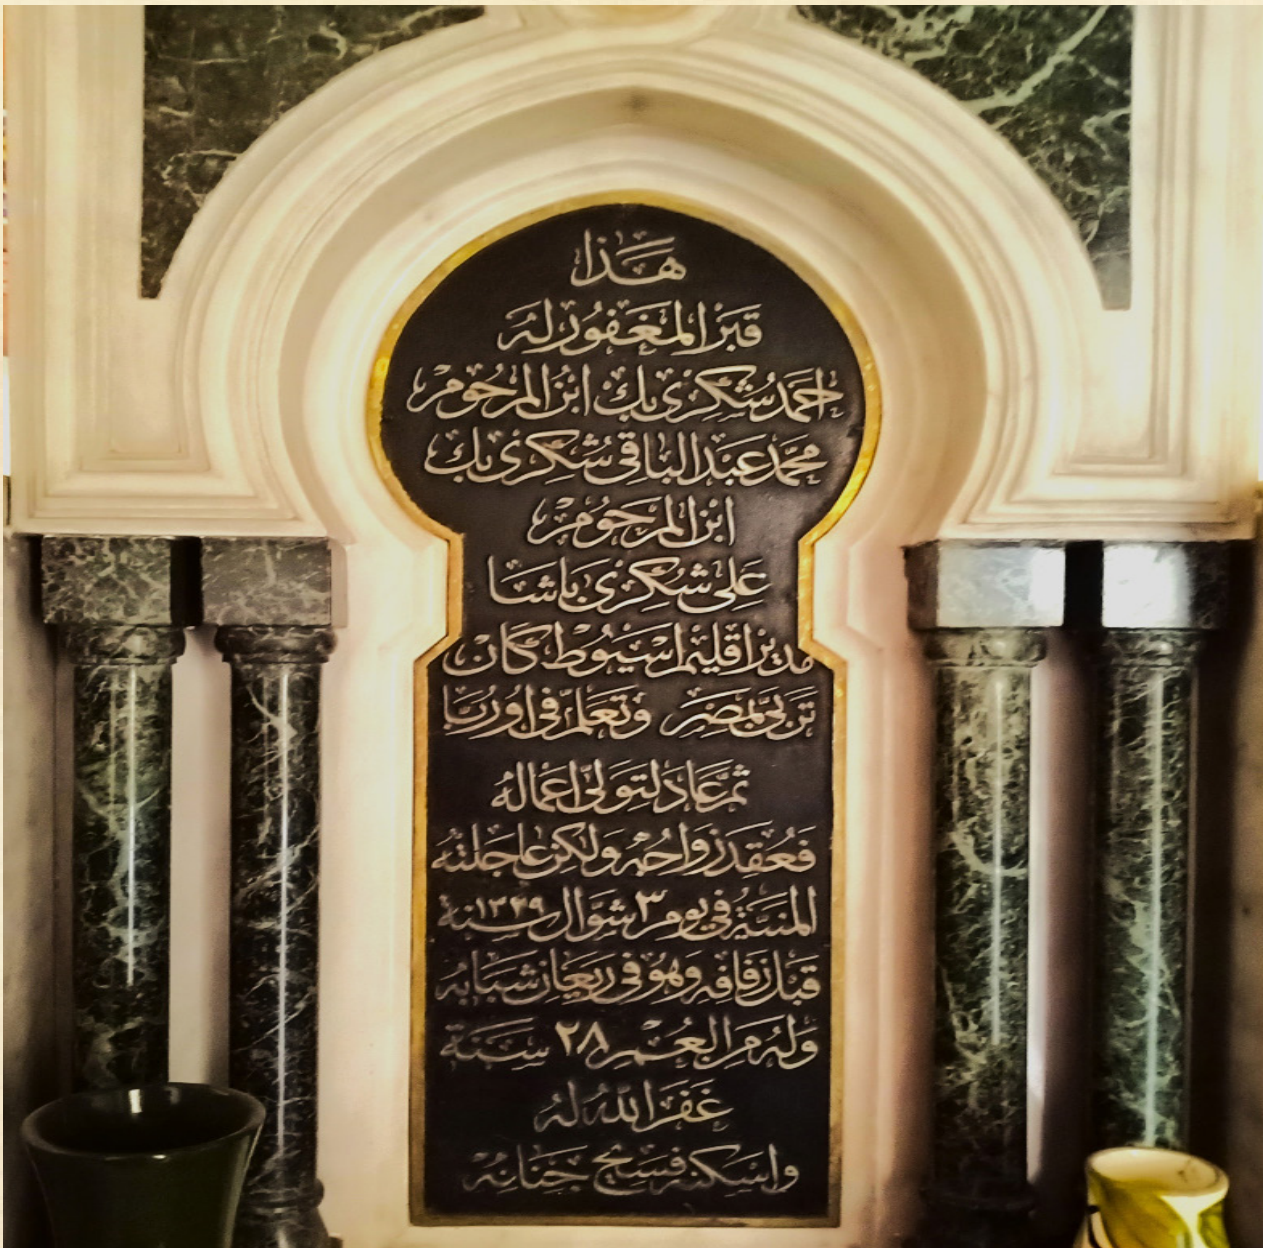 هذا
قبر المغفور له
احمد شكرى بك ابن المرحوم
محمد عبد الباقى شكرى بك
ابن المرحوم
على شكرى باشا
مدير اقليم اسيوط كان
تربى بمصر وتعلم فى اوربا
ثم عاد لتولى اعماله
فعقد زواجه ولكن عاجلته
المنية فى يوم ٣ شوال سنة ١٣٣٩
قبل زفافه وهو فى ريعان شبابه
وله من العمر ٢٨ سنة
غفر الله له
واسكنه فسيح جنانه